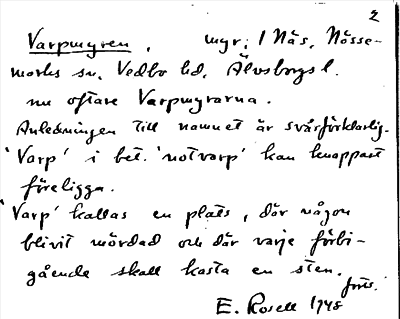 2
Varpmyren, myr; 1 Näs, Nösse-
marks sn, Vedbo hd, Älvsborgs l.
nu oftare Varpmyrarna.
Anledningen till namnet är svårförklarlig.
'Varp' i bet. 'notvarp' kan knappast
föreligga.
'Varp' kallas en plats, där någon
blivit mördad och där varje förbi-
gående skall kasta en sten.
forts.
E. Rosell 1948